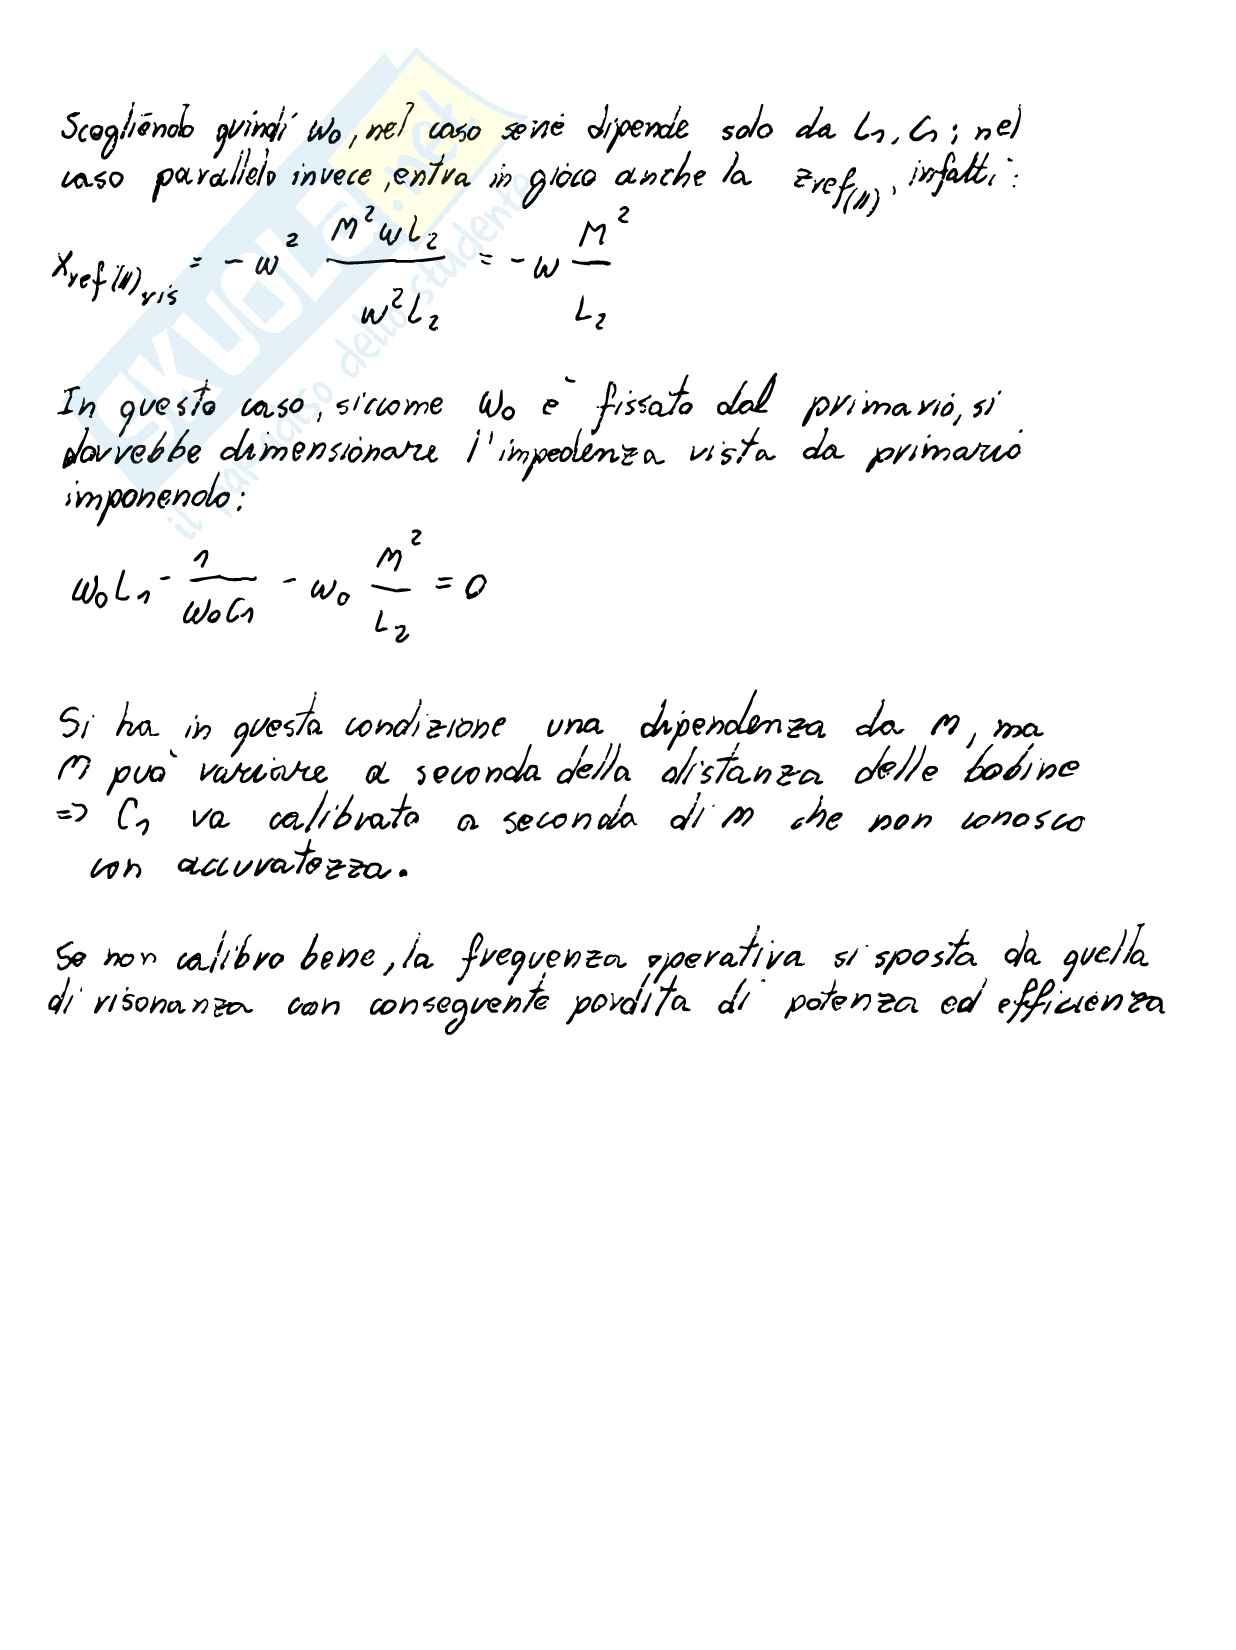 Scegliendo quindi ω₀, nel caso serie dipende solo da L₁, C₁; nel
caso parallelo invece, entra in gioco anche la z_ref(//), infatti:
X_ref(//)_ris = - ω² M²ωL₂ / ω²L₂ = - ω M² / L₂
In questo caso, siccome ω₀ è fissato dal primario, si
dovrebbe dimensionare l'impedenza vista da primario
imponendo:
ω₀L₁ - 1 / ω₀C₁ - ω₀ M² / L₂ = 0
Si ha in questa condizione una dipendenza da M, ma
M può variare a seconda della distanza delle bobine
=> C₁ va calibrato a seconda di M che non conosco
con accuratezza.
Se non calibro bene, la frequenza operativa si sposta da quella
di risonanza con conseguente perdita di potenza ed efficienza
SKUOLA.net
il paradiso dello studente